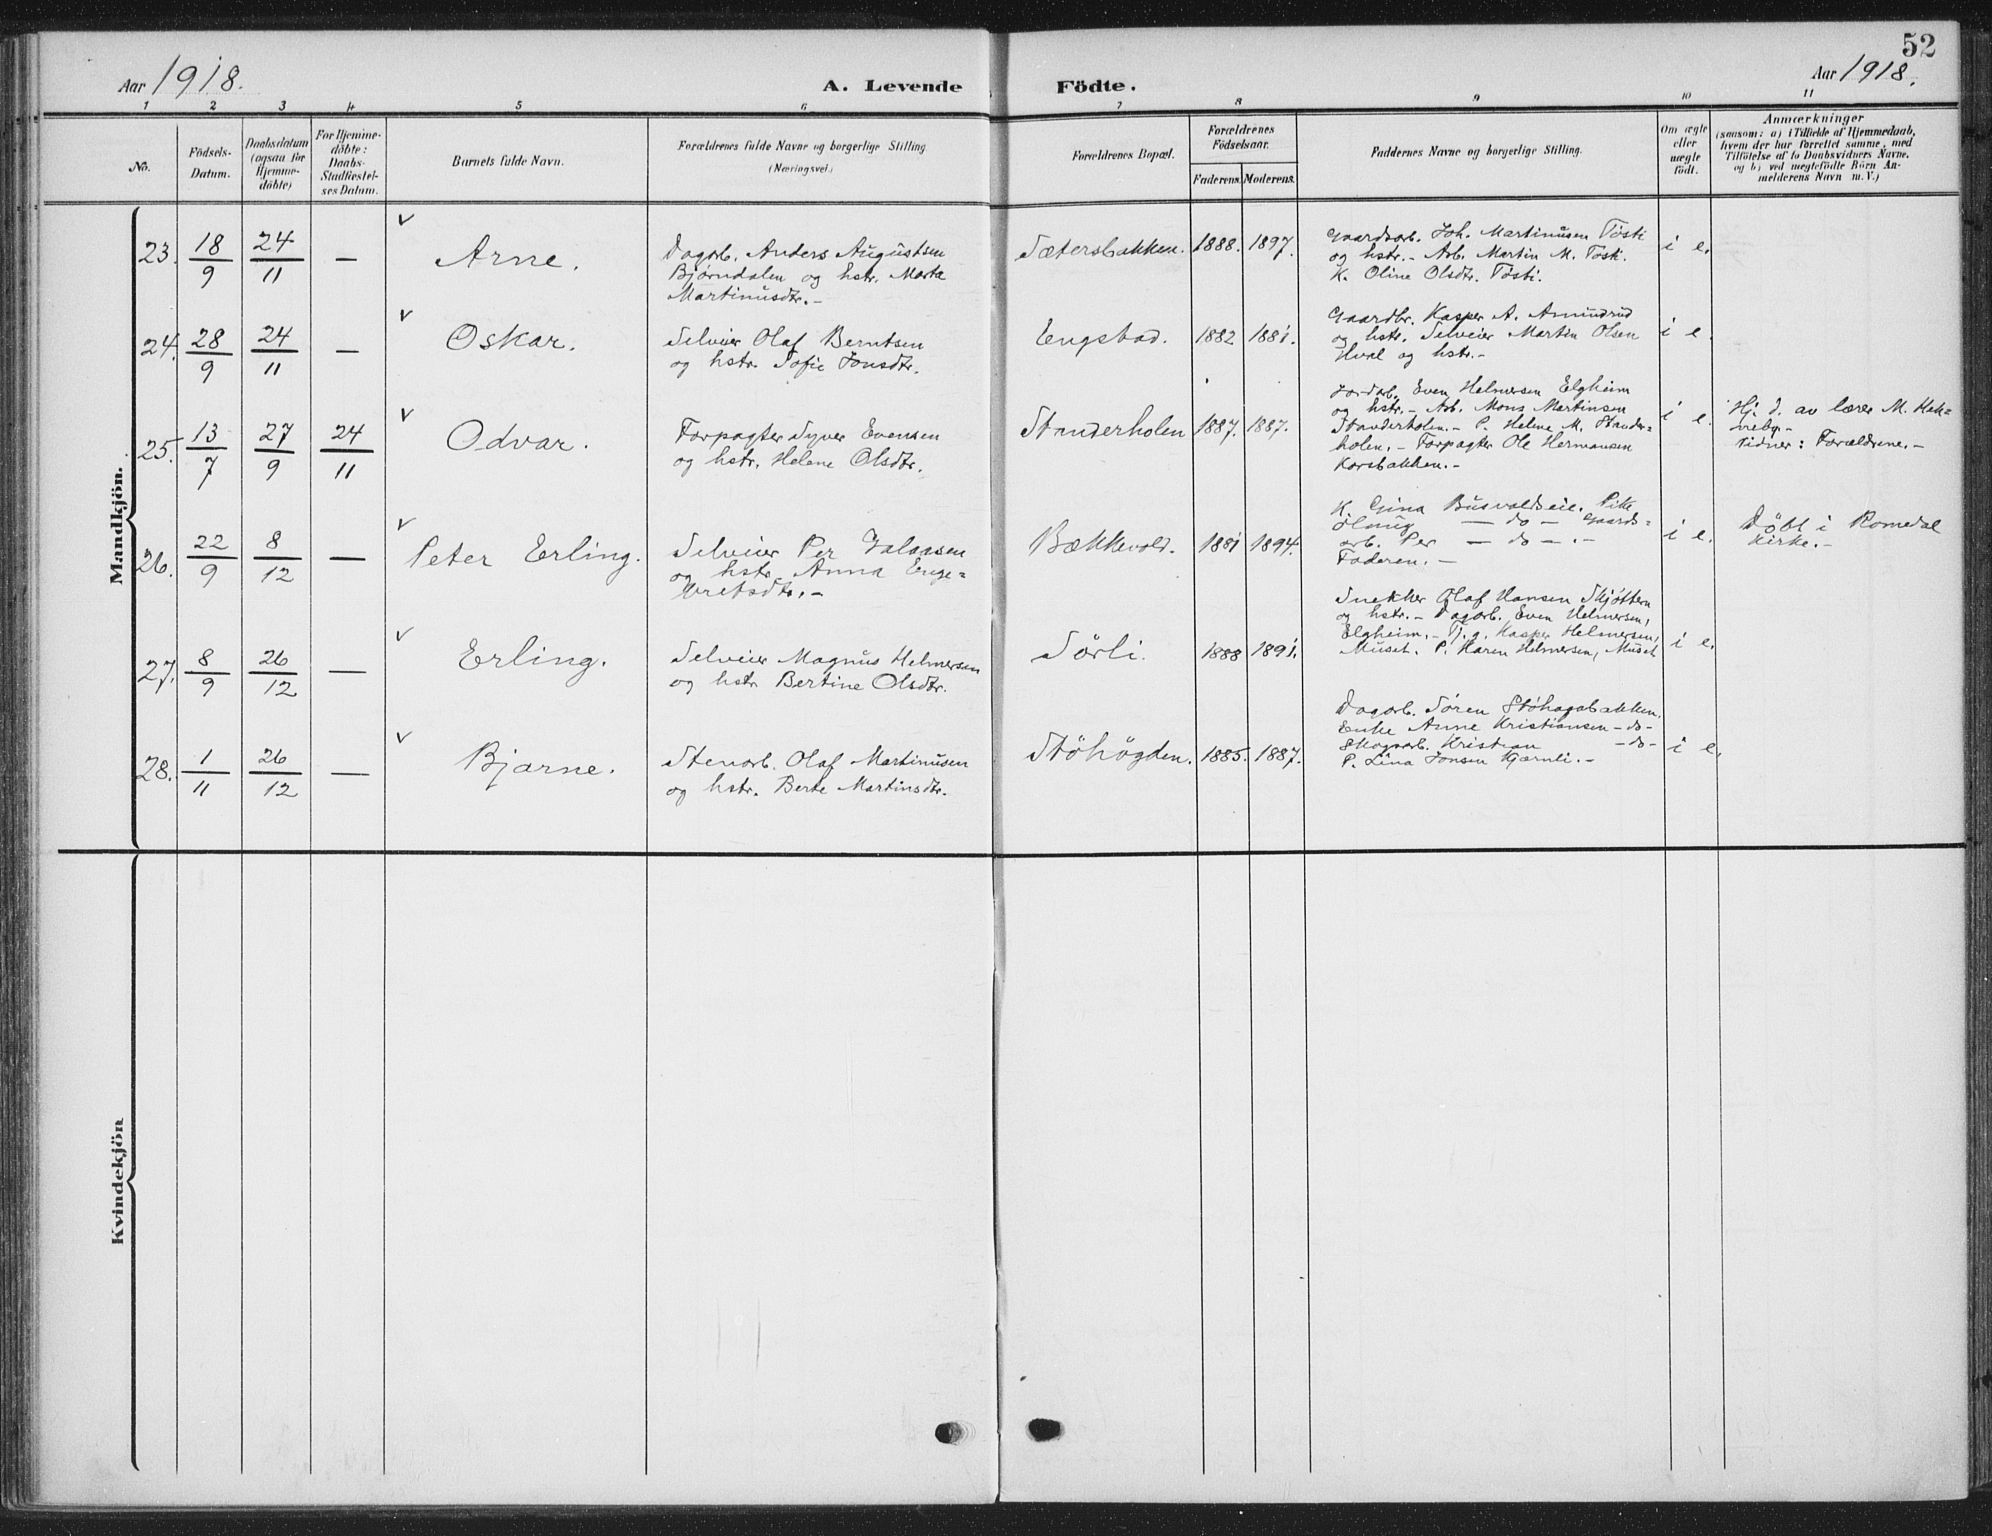 Aar 1918.
A. Levende
Födte.
52
Aar 1918.
1 2 3 4 5 6 7 8 9 10 11
No.
Födsels-
Datum.
Daabsdatum
(ogsaa for
Hjemme-
döbte)
For Hjemme-
döbte:
Daabs-
Stadfæstel-
ses Datum.
Barnets fulde Navn.
Forældrenes fulde Navne og borgerlige Stilling
(Næringsvei.)
Forældrenes Bopæl.
Forældrenes
Födselsaar.
Faderens. Moderens.
Faddernes Navne og borgerlige Stilling.
Om ægte
eller
uægte
födt.
Anmærkninger
(saasom: a) i Tilfælde af Hjemmedaab,
hvem der har forrettet samme, med
Tilföielse af to Daabsvidners Navne,
og b) ved uegtefödte Börn An-
melderens Navn m. V.)
Mandkjön.
23. 18/9 24/11 — Arne.
Dagarb. Anders Augustsen
Bjørndalen og hstr. Marta
Martinusdtr.-
Sætersbakken. 1888. 1897.
Gaardsarb. Joh. Martinusen Tøsti
og hstr.- Arb. Martin M. Tøsti.
K. Oline Olsdtr. Tøsti.
i e.
24. 28/9 24/11 — Oskar.
Selveier Olaf Berntsen
og hstr. Sofie Jonsdtr.
Engstad. 1882 1881.
Gaardbr. Kasper A. Amundrud
og hstr. Selveier Martin Olsen
Hval og hstr.-
i e.
25. 13/7 27/9 24/11 Odvar.
Forpagter Syver Evensen
og hstr. Helene Olsdtr.
Standerholen 1887. 1887.
Jordarb. Even Helmersen Elgheim
og hstr.- Arb. Mons Martinsen
Standerholen.- P. Helene M. Stander-
holen.- Forpagter Ole Hermansen
Korsbakken.-
i e.
Hj. d. av lærer M. Hak=
Vidner: Forældrene.-
26. 22/9 8/12 — Peter Erling.
Selveier Per
og hstr. Anna Enge=
bretsdtr.-
Bækkevold. 1881 1894.
K. Gina Busvaldseie. Pike
Olaug — do — Gaards=
arb. Per — do — .-
Faderen.-
i e.
Døbt i Romedal
Kirke.-
27. 8/9 26/12 — Erling.
Selveier Magnus Helmersen
og hstr Bertine Olsdtr.
Sørli. 1888 1891.
Snekker Olaf Hansen Skjøttern
og hstr.- Dagarb. Even Helmersen,
Elgheim.- Tj. g. Kasper Helmersen,
Muset. P. Karen Helmersen, Muset
i e.
28. 1/11 26/12 — Bjarne.
Stenarb. Olaf Martinusen
og hstr. Berte Martinsdtr.
Støhøgden. 1885. 1887.
Dagarb. Søren Støhagabakken.
Enke Anne Kristiansen - do -
Skogsarb. Kristian - do -
P. Lina Jonsen Kjærnli.-
i e.
Kvindekjön